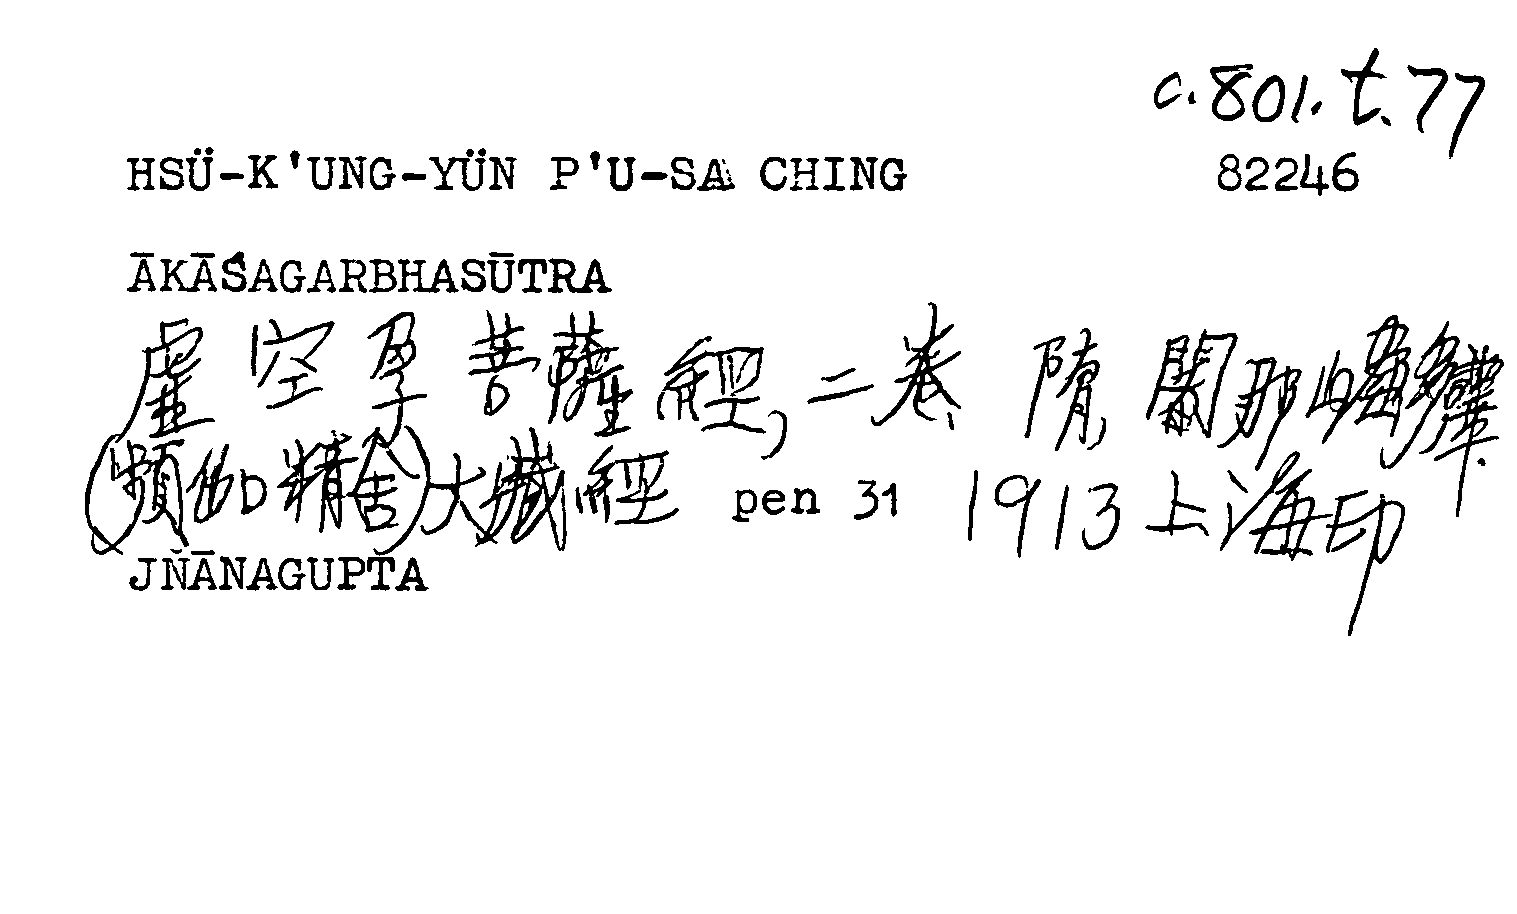 c.801.t.77
HSÜ-K'UNG-YÜN P'U-SA CHING 82246
ĀKĀŚAGARBHASŪTRA
虛空孕菩薩經, 二卷 隋 闍那崛多譯.
(頻伽精舍)大藏經 pen 31 1913 上海印
JÑĀNAGUPTA